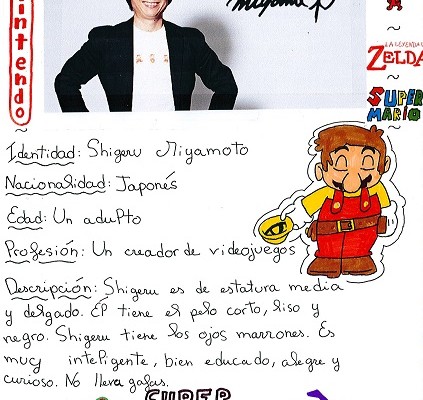 Nintendo
LA LEYENDA DE
ZELDA
SUPER
MARIO
Identidad: Shigeru Miyamoto
Nacionalidad: Japonés
Edad: Un adulto
Profesión: Un creador de videojuegos
Descripción: Shigeru es de estatura media
y delgado. Él tiene el pelo corto, liso y
negro. Shigeru tiene los ojos marrones. Es
muy inteligente, bien educado, alegre y
curioso. No lleva gafas.
SUPER